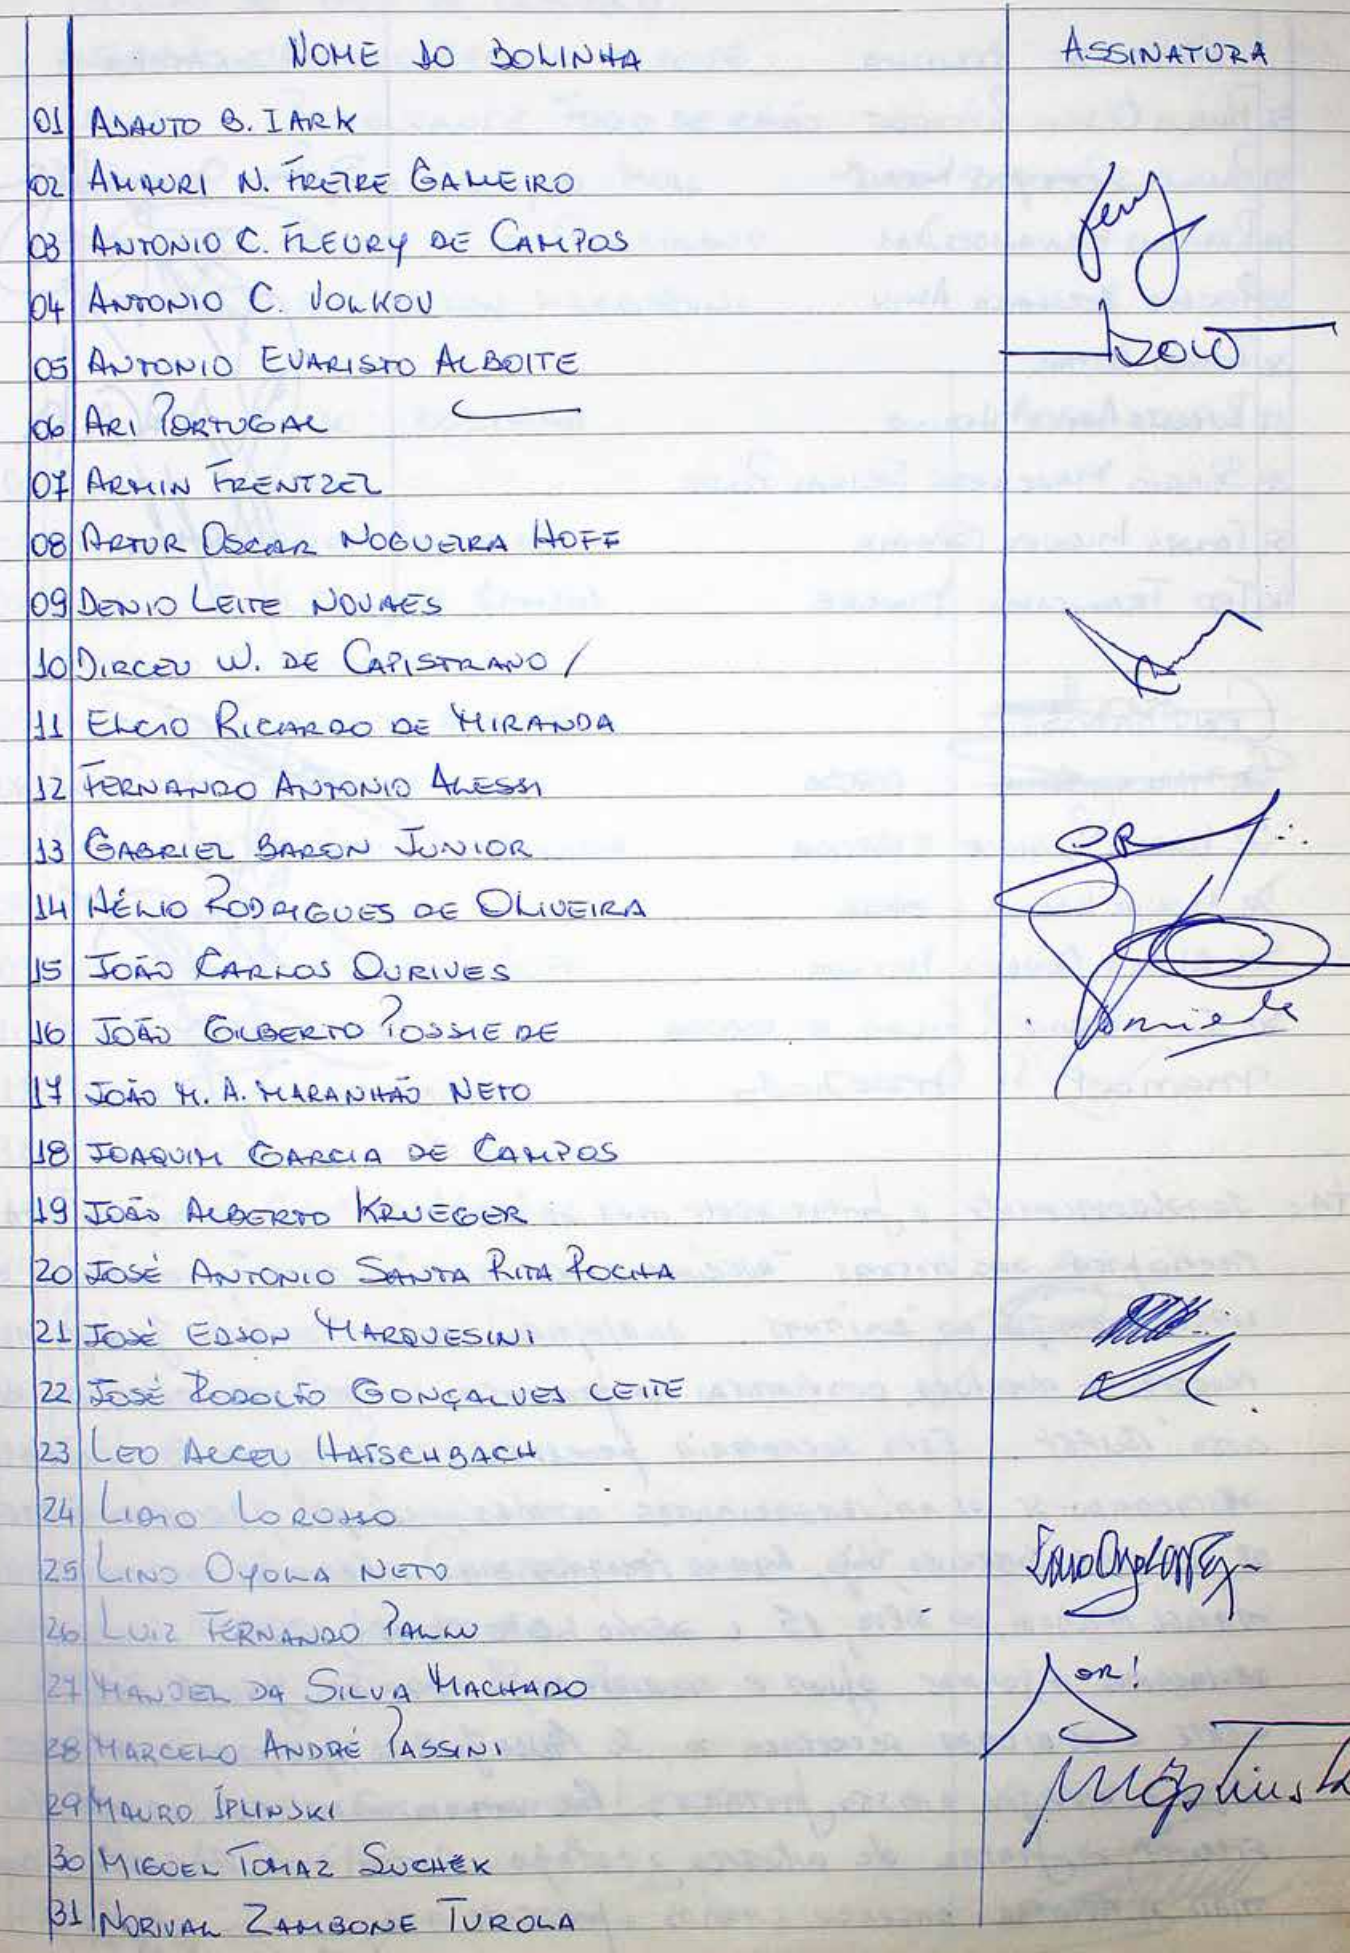 NOME DO BOLINHA ASSINATURA
01 ADAUTO B. IARK
02 AMAURI N. FREIRE GAMEIRO
03 ANTONIO C. FLEURY DE CAMPOS
04 ANTONIO C. VOLKOV
05 ANTONIO EVARISTO ALBOITE
06 ARI PORTUGAL
07 ARMIN FRENTZEL
08 ARTUR OSCAR NOGUEIRA HOFF
09 DENIO LEITE NOVAES
10 DIRCEU W. DE CAPISTRANO /
11 ELCIO RICARDO DE MIRANDA
12 FERNANDO ANTONIO ALESSI
13 GABRIEL BARON JUNIOR
14 HÉLIO RODRIGUES DE OLIVEIRA
15 JOÃO CARLOS OURIVES
16 JOÃO GILBERTO POSSIEDE
17 JOÃO M. A. MARANHÃO NETO
18 JOAQUIM GARCIA DE CAMPOS
19 JOÃO ALBERTO KRUEGER
20 JOSÉ ANTONIO SANTA RITA ROCHA
21 JOSÉ EDSON MARQUESINI
22 JOSÉ RODOLFO GONÇALVES LEITE
23 LEO ALCEU HATSCHBACH
24 LIDIO LOROSSO
25 LINO OYOLA NETO
26 LUIZ FERNANDO PALLU
27 MANOEL DA SILVA MACHADO
28 MARCELO ANDRÉ PASSINI
29 MAURO IPLINSKI
30 MIGUEL TOMAZ SUCHEK
31 NORIVAL ZAMBONE TUROLA